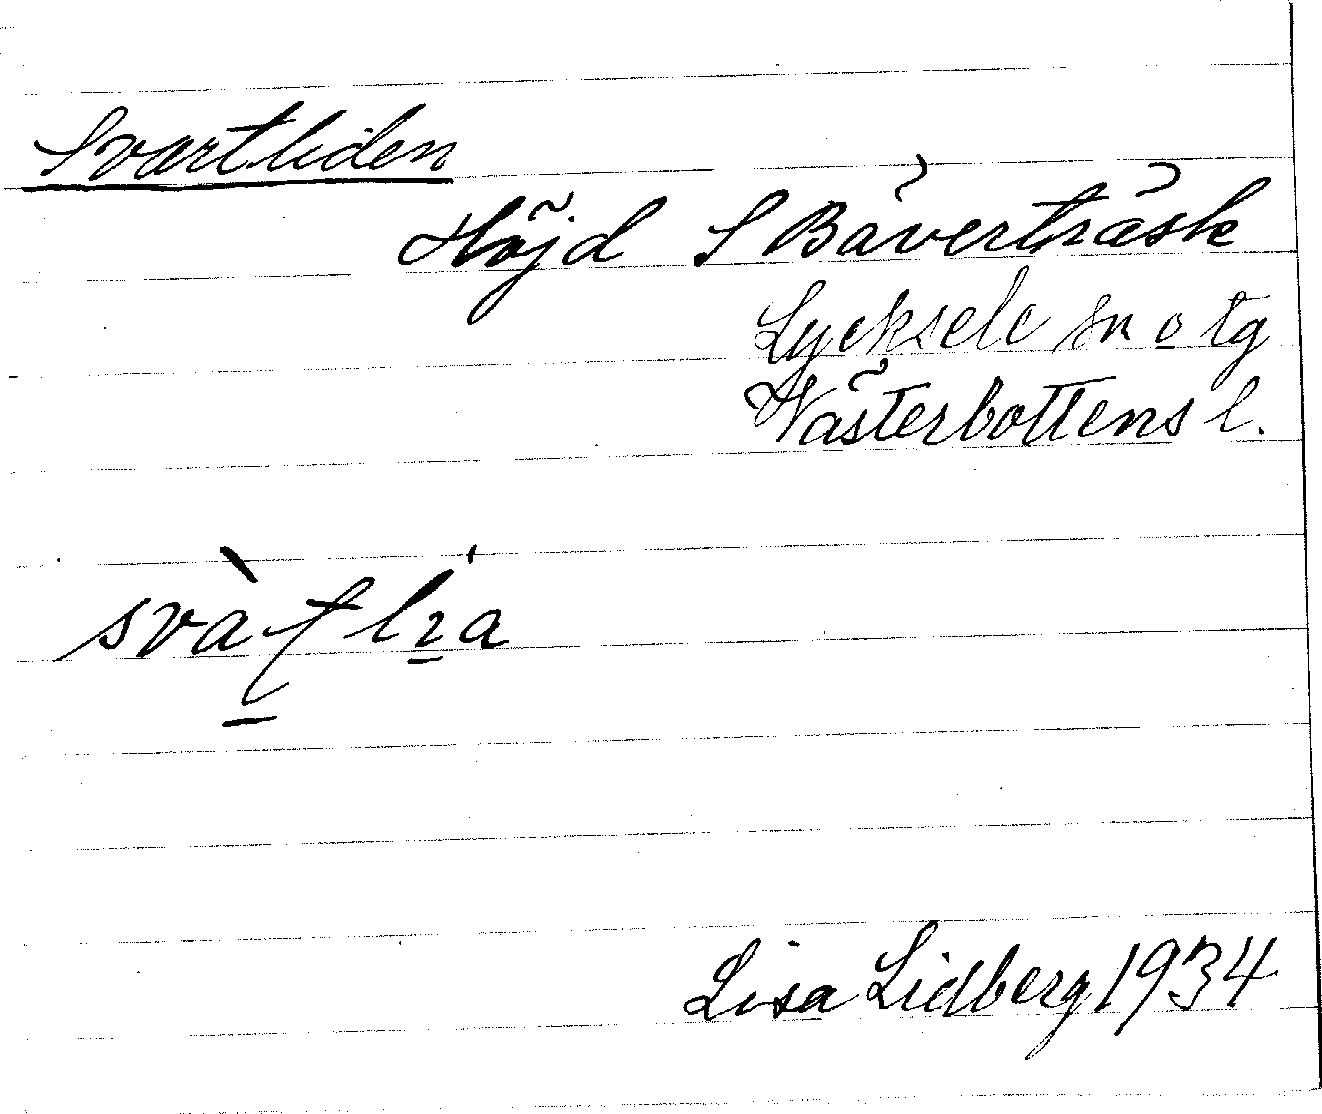 Svartliden
Höjd S Bäverträsk
Lycksele sn o tg
Västerbottens l.
Lisa Lidberg 1934